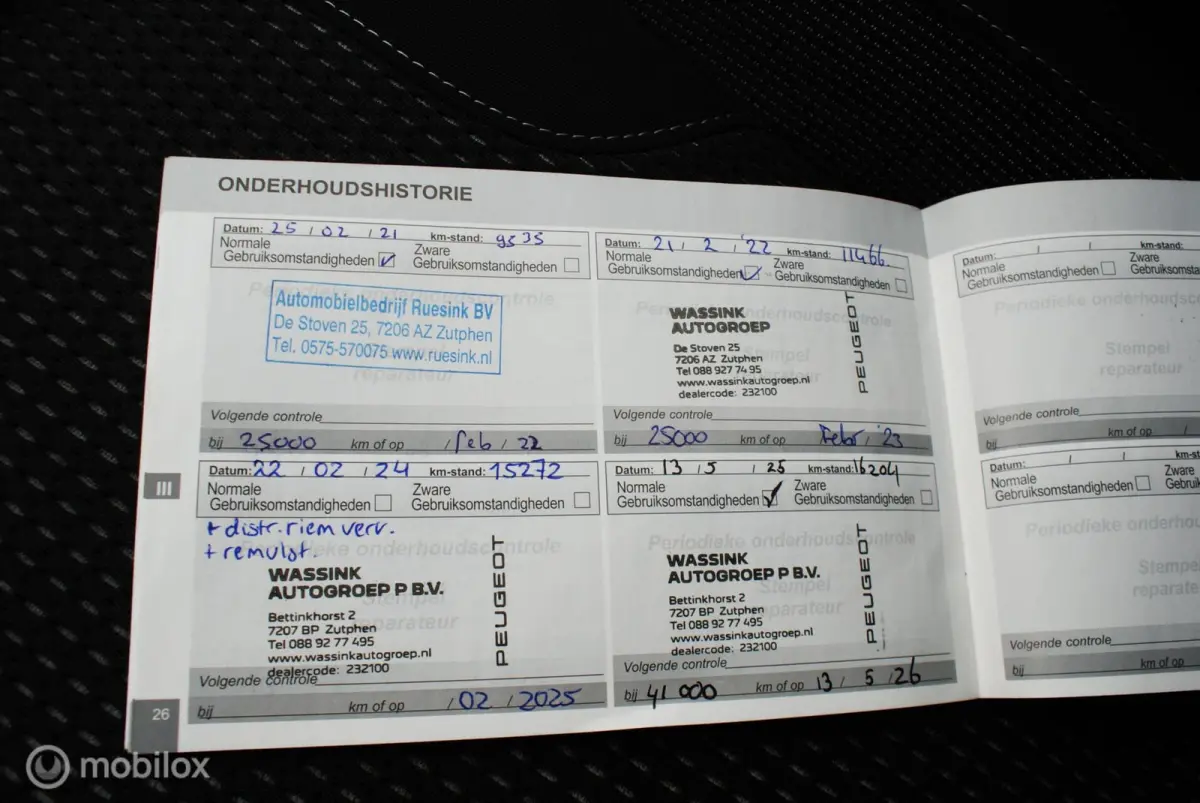 ONDERHOUDSHISTORIE
Datum: 25 / 02 / 21 km-stand: 9535
Normale Gebruiksomstandigheden Zware Gebruiksomstandigheden
Automobielbedrijf Ruesink BV
De Stoven 25, 7206 AZ Zutphen
Tel. 0575-570075 www.ruesink.nl
reparateur
Volgende controle
bij 25000 km of op / feb / 22
Datum: 21 / 2 / '22 km-stand: 11466.
Normale Gebruiksomstandigheden Zware Gebruiksomstandigheden
Periodieke onderhoudscontrole
WASSINK
AUTOGROEP
De Stoven 25
7206 AZ Zutphen
Tel 088 927 74 95
www.wassinkautogroep.nl
dealercode: 232100
PEUGEOT
Stempel
reparateur
Volgende controle
bij 25000 km of op Febr / '23
Datum: 22 / 02 / 24 km-stand: 15272
Normale Gebruiksomstandigheden Zware Gebruiksomstandigheden
+ distr.riem verv.
+ remvlst.
Periodieke onderhoudscontrole
WASSINK
AUTOGROEP P B.V.
Bettinkhorst 2
7207 BP Zutphen
Tel 088 92 77 495
www.wassinkautogroep.nl
dealercode: 232100
PEUGEOT
Stempel
reparateur
Volgende controle
bij km of op / 02 / 2025
Datum: 13 / 5 / 25 km-stand: 16204
Normale Gebruiksomstandigheden Zware Gebruiksomstandigheden
Periodieke onderhoudscontrole
WASSINK
AUTOGROEP P B.V.
Bettinkhorst 2
7207 BP Zutphen
Tel 088 92 77 495
www.wassinkautogroep.nl
dealercode: 232100
PEUGEOT
Stempel
reparateur
Volgende controle
bij 41 000 km of op 13 / 5 / 26
III
26
Datum: / / km-stand:
Normale Gebruiksomstandigheden Zware
Periodieke
Stempel
reparateur
Volgende controle
bij km of op /
Datum: / /
Normale Gebruiksomstandigheden Zware
Periodieke
Volgende controle
bij km of op
mobilox